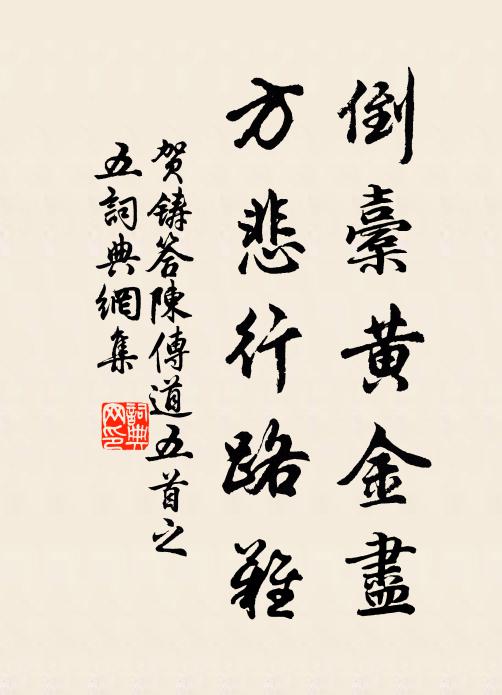 倒橐黄金盡
方悲行路難
贺鑄答陳傳道五首之
五詞典網集
詞典
网印